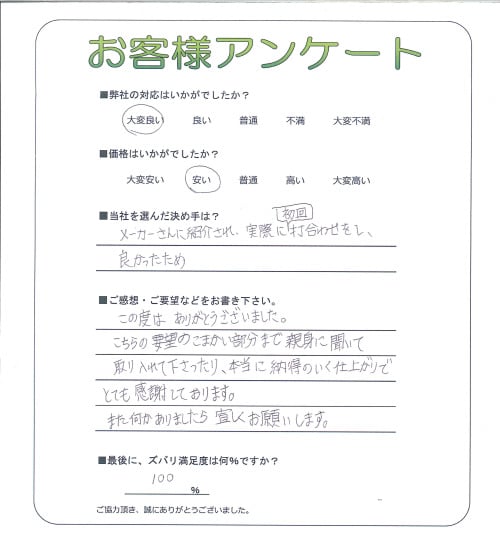 お客様アンケート
■弊社の対応はいかがでしたか？
大変良い 良い 普通 不満 大変不満
■価格はいかがでしたか？
大変安い 安い 普通 高い 大変高い
■当社を選んだ決め手は？
初回
メーカーさんに紹介され、実際に打合わせをし、
良かったため
■ご感想・ご要望などをお書き下さい。
この度は ありがとうございました。
こちらの要望のこまかい部分まで親身に聞いて
取り入れて下さったり、本当に納得のいく仕上がりで
とても感謝しております。
また何かありましたら宜しくお願いします。
■最後に、ズバリ満足度は何%ですか？
100 %
ご協力頂き、誠にありがとうございました。